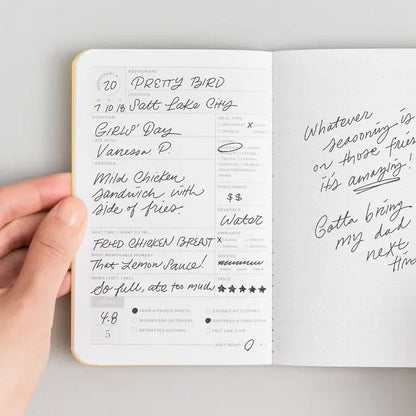 RESTAURANT #
20
RESTAURANT
PRETTY BIRD
LOCATION
7 10 18 Salt Lake City
OCCASION
GIRLS' Day
I ATE WITH
Vanessa P.
I ORDERED
Mild Chicken
Sandwich with
side of fries.
MEAL TYPE
BREAKFAST X LUNCH
BRUNCH DINNER
PRICE RANGE
$$
BEVERAGE
Water
AMBIANCE
NEXT TIME, I WANT TO TRY
FRIED CHICKEN BREAST
MOST MEMORABLE MOMENT
That Lemon Sauce!
SERVICE
WHEN I LEFT, I FELT
So full, ate too much
TASTE
4.8
5
TOOK A FOODIE PHOTO
WISHED FOR LEFTOVERS
REGRETTED NOTHING
STAINED MY CLOTHES
FELT LIKE A VIP
VISIT AGAIN
Whatever
seasoning is
on those fries
it's amazing!
Gotta bring
my dad
next
time